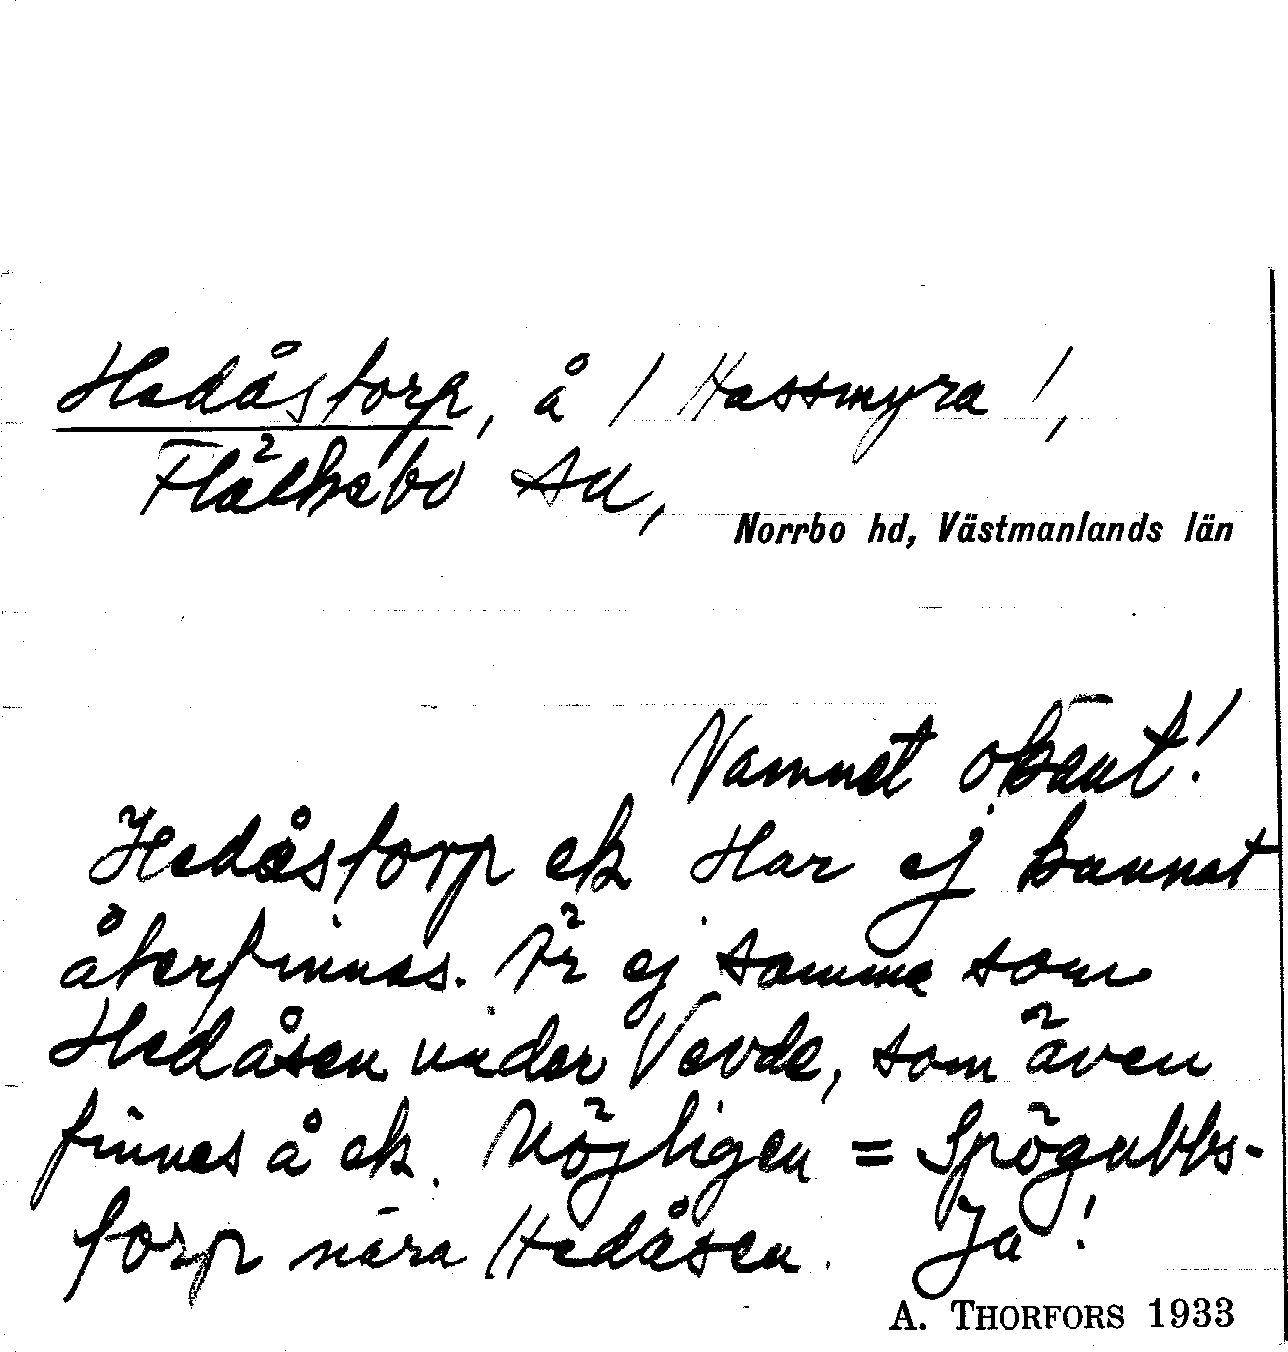 Hedåstorp, å / Hassmyra /,
Fläckebo sn,
Norrbo hd, Västmanlands län
Namnet okänt!
Hedåstorp ek Har ej kunnat
återfinnas. Är ej samma som
Hedåsen under Vevde, som även
finnes å ek. Möjligen = Spögubbs-
torp nära Hedåsen. Ja!
A. THORFORS 1933